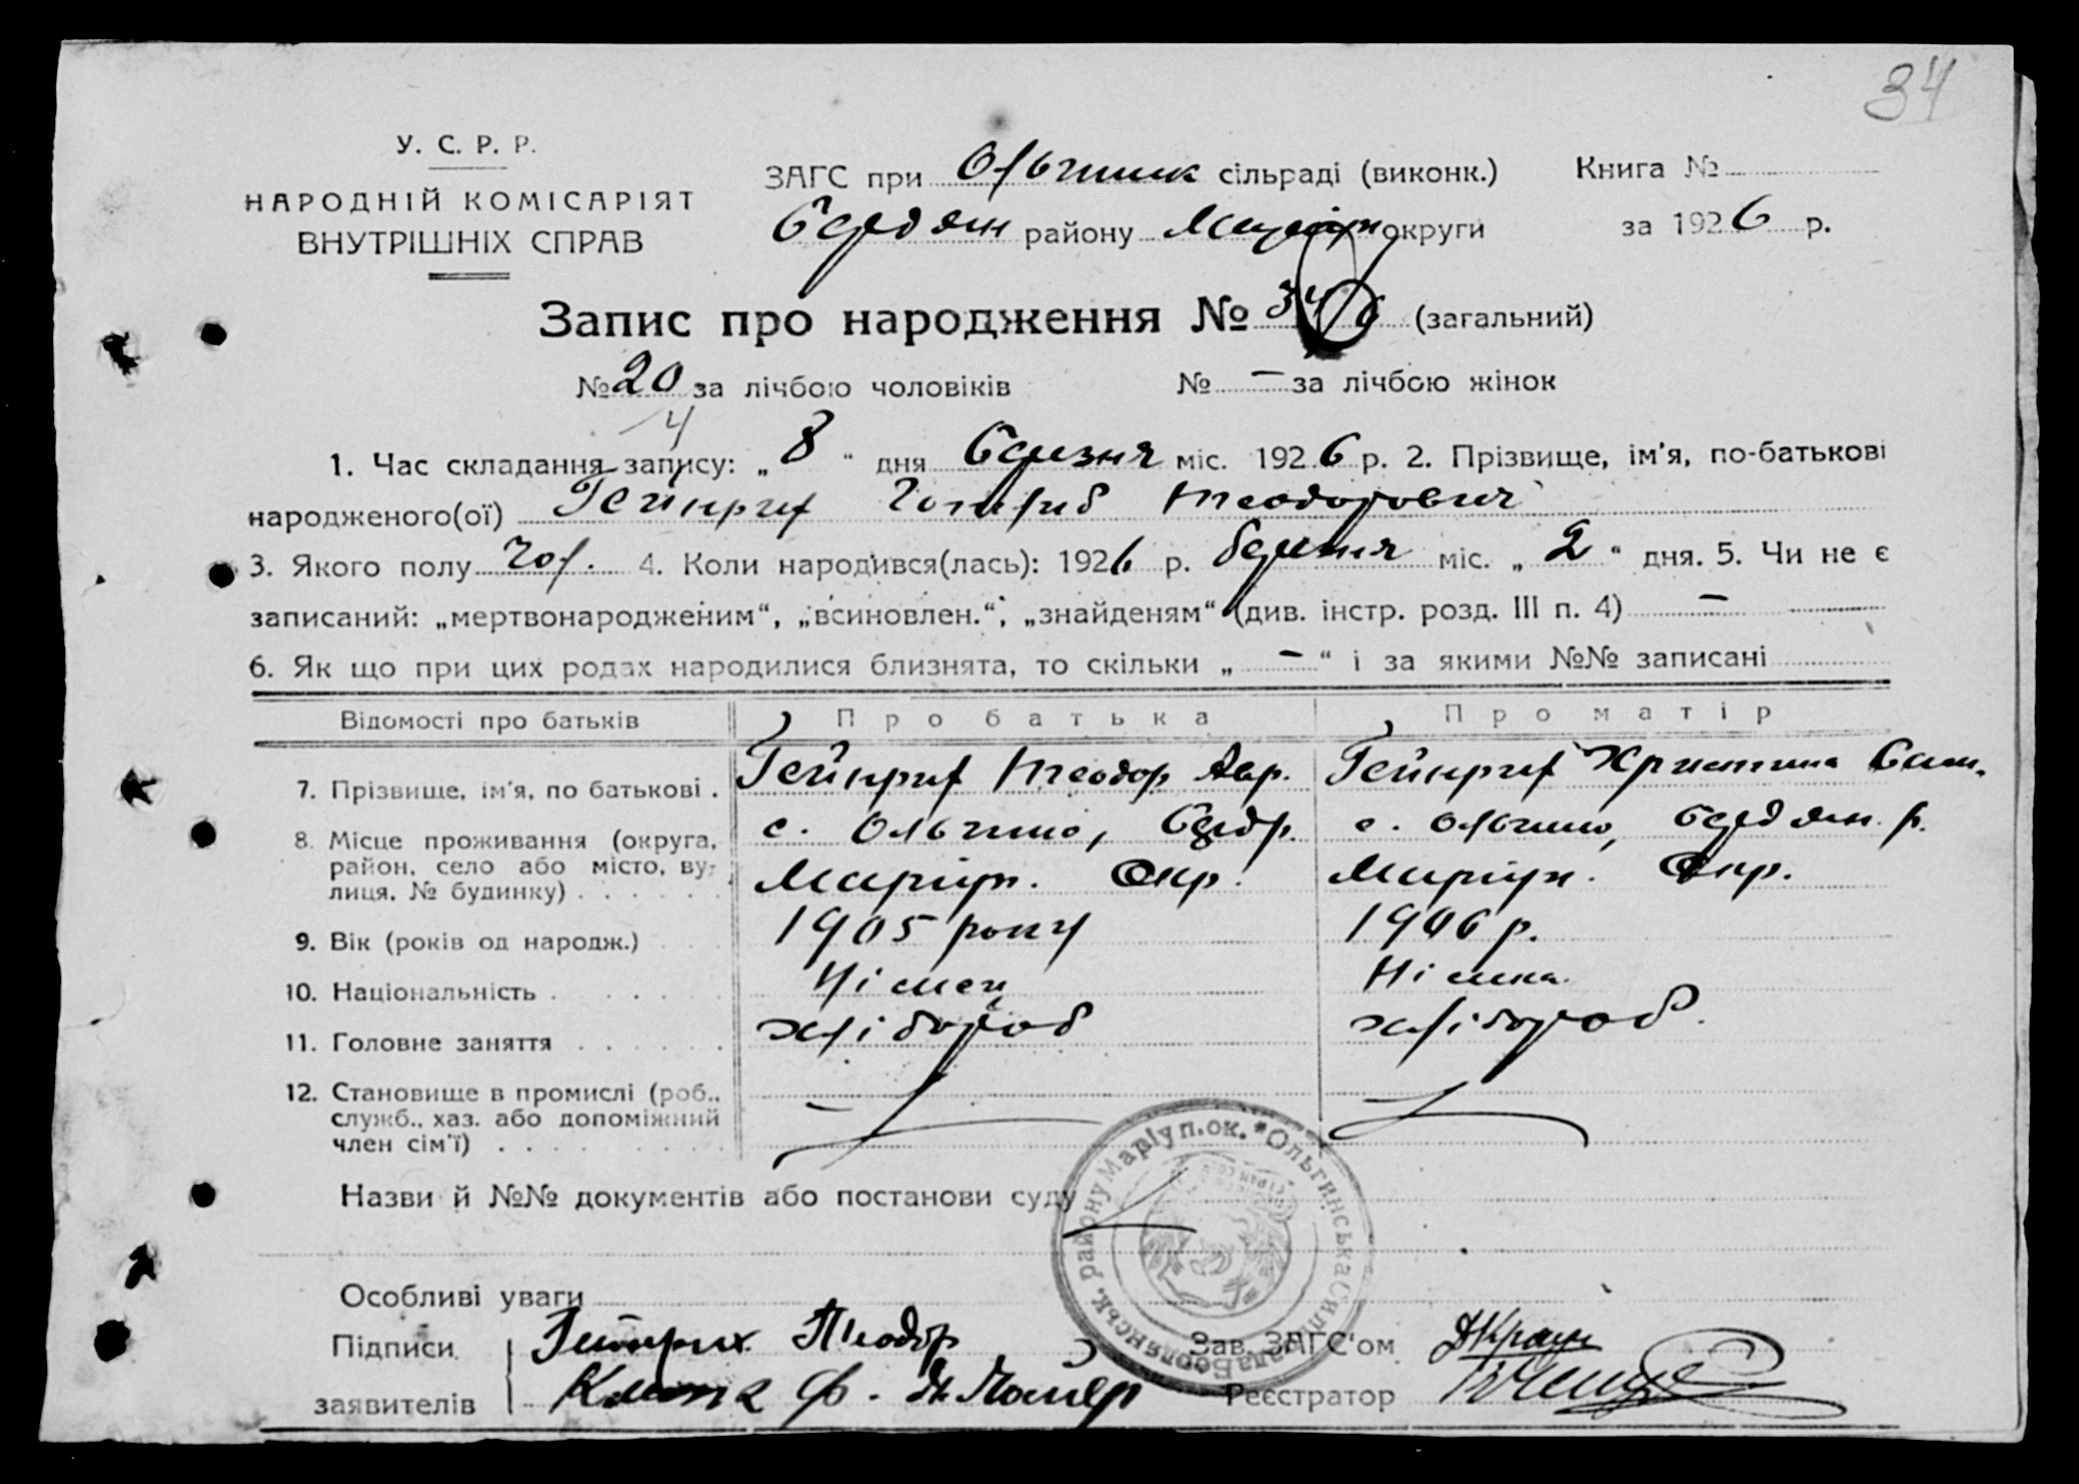 34
У. С. Р. Р.
НАРОДНІЙ КОМІСАРІЯТ
ВНУТРІШНІХ СПРАВ
ЗАГС при Ольгинск сільраді (виконк.)
Бердян району Маріуп округи
Книга №
за 1926 р.
Запис про народження № 34 (загальний)
№ 20 за лічбою чоловіків № — за лічбою жінок
4
1. Час складання запису: „ 8 “ дня березня міс. 1926 р. 2. Прізвище, ім'я, по-батькові
народженого(ої) Гейнрих Готлиб Теодорович
3. Якого полу чол. 4. Коли народився(лась): 1926 р. березня міс. „ 2 “ дня. 5. Чи не є
записаний: „мертвонародженим“, „всиновлен.“, „знайденям“ (див. інстр. розд. III п. 4) —
6. Як що при цих родах народилися близнята, то скільки „ — “ і за якими №№ записані
Відомості про батьків Про батька Про матір
7. Прізвище, ім'я, по батькові . Гейнрих Теодор Гейнрих Христина
8. Місце проживання (округа, район, село або місто, вулиця, № будинку) . . . . . . с. Ольгино, Бердр. с. Ольгино, Бердян. р.
Маріуп. Окр. Маріуп. Окр.
9. Вік (років од народж.) 1905 року 1906 р.
10. Національність . . . . . . Німец Німка
11. Головне заняття . . . . . . хлібороб хлібороб.
12. Становище в промислі (роб., служб., хаз. або допоміжний член сім'ї) . . . . . . . .
Назви й №№ документів або постанови суду
Ольгинська Сильрада Бердянськ. району Маріуп. ок. *
Особливі уваги
Підписи Гейнрих Теодор Зав. ЗАГС'ом
заявителів Ф. Реєстратор